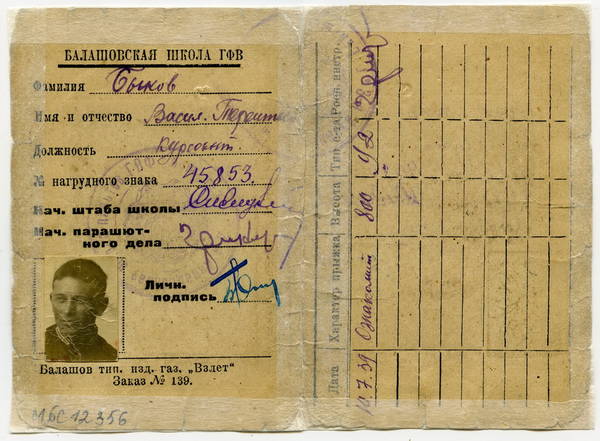 БАЛАШОВСКАЯ ШКОЛА ГФВ
Фамилия Быков
Имя и отчество Васил.
Должность Курсант
№ нагрудного знака 45853.
Нач. штаба школы
Нач. парашют-
ного дела
Личн.
подпись
Балашов тип. изд. газ. „Взлет"
Заказ № 139.
МБС 12356
Дата Характер прыжка Высота Тип с-та Росп. инстр.
10.7.39 Ознакомит 800 У2